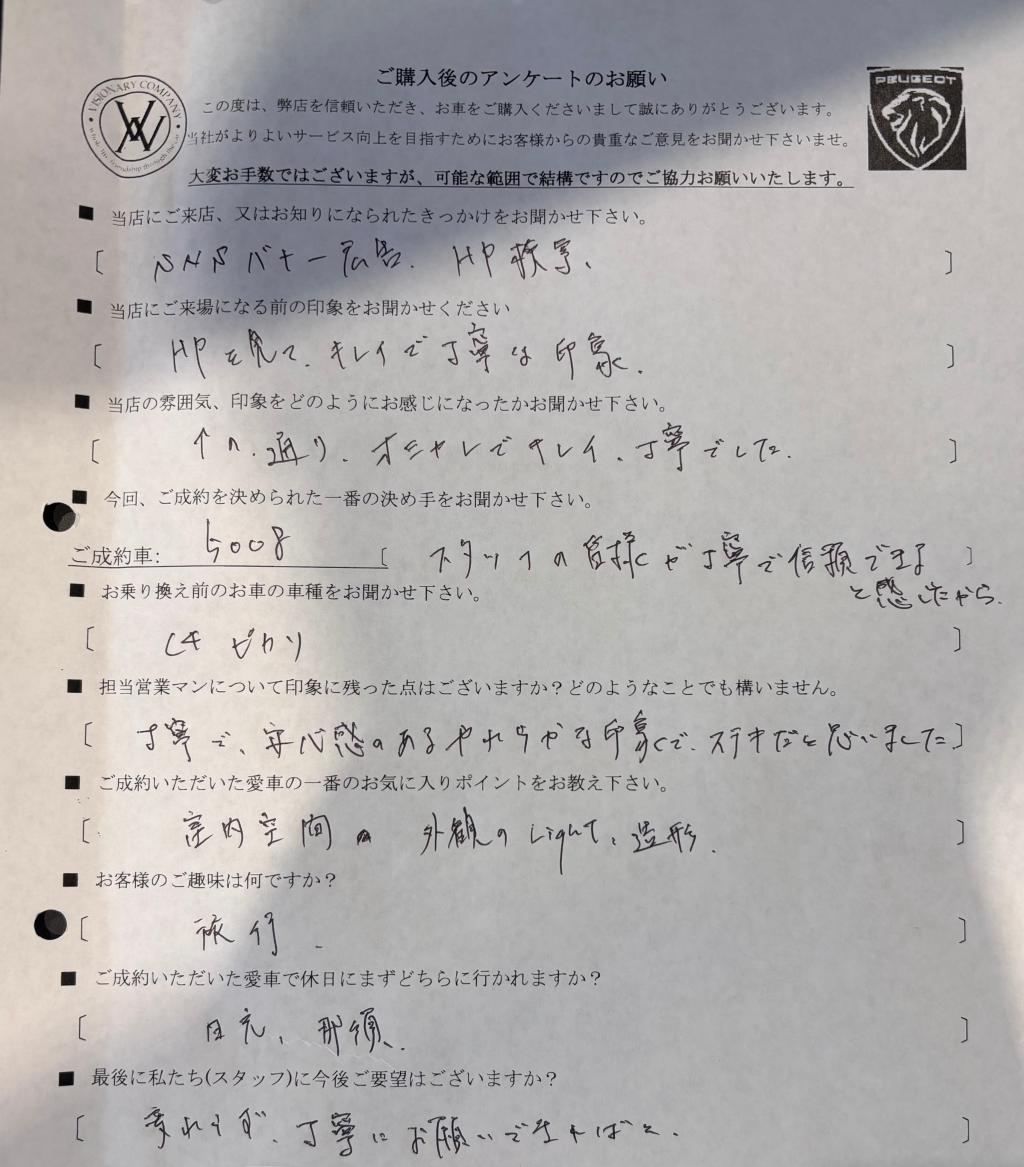 ご購入後のアンケートのお願い
VISIONARY COMPANY
PEUGEOT
この度は、弊店を信頼いただき、お車をご購入くださいまして誠にありがとうございます。
当社がよりよいサービス向上を目指すためにお客様からの貴重なご意見をお聞かせ下さいませ。
大変お手数ではございますが、可能な範囲で結構ですのでご協力お願いいたします。
■ 当店にご来店、又はお知りになられたきっかけをお聞かせ下さい。
〔 SNSバナー広告、HP検索、 〕
■ 当店にご来場になる前の印象をお聞かせください
〔 HPを見て、キレイで丁寧な印象。 〕
■ 当店の雰囲気、印象をどのようにお感じになったかお聞かせ下さい。
〔 ↑の通り、オシャレでキレイ、丁寧でした。 〕
■ 今回、ご成約を決められた一番の決め手をお聞かせ下さい。
ご成約車: 5008 〔 スタッフの皆様が丁寧で信頼できる 〕
と感じたから。
■ お乗り換え前のお車の車種をお聞かせ下さい。
〔 〕
■ 担当営業マンについて印象に残った点はございますか？どのようなことでも構いません。
〔 丁寧で、安心感のあるやわらかな印象で、ステキだと思いました 〕
■ ご成約いただいた愛車の一番のお気に入りポイントをお教え下さい。
〔 室内空間 外観のLight、造形。 〕
■ お客様のご趣味は何ですか？
〔 旅行。 〕
■ ご成約いただいた愛車で休日にまずどちらに行かれますか？
〔 日光、那須。 〕
■ 最後に私たち(スタッフ)に今後ご要望はございますか？
〔 変わらず、丁寧にお願いできればと。 〕